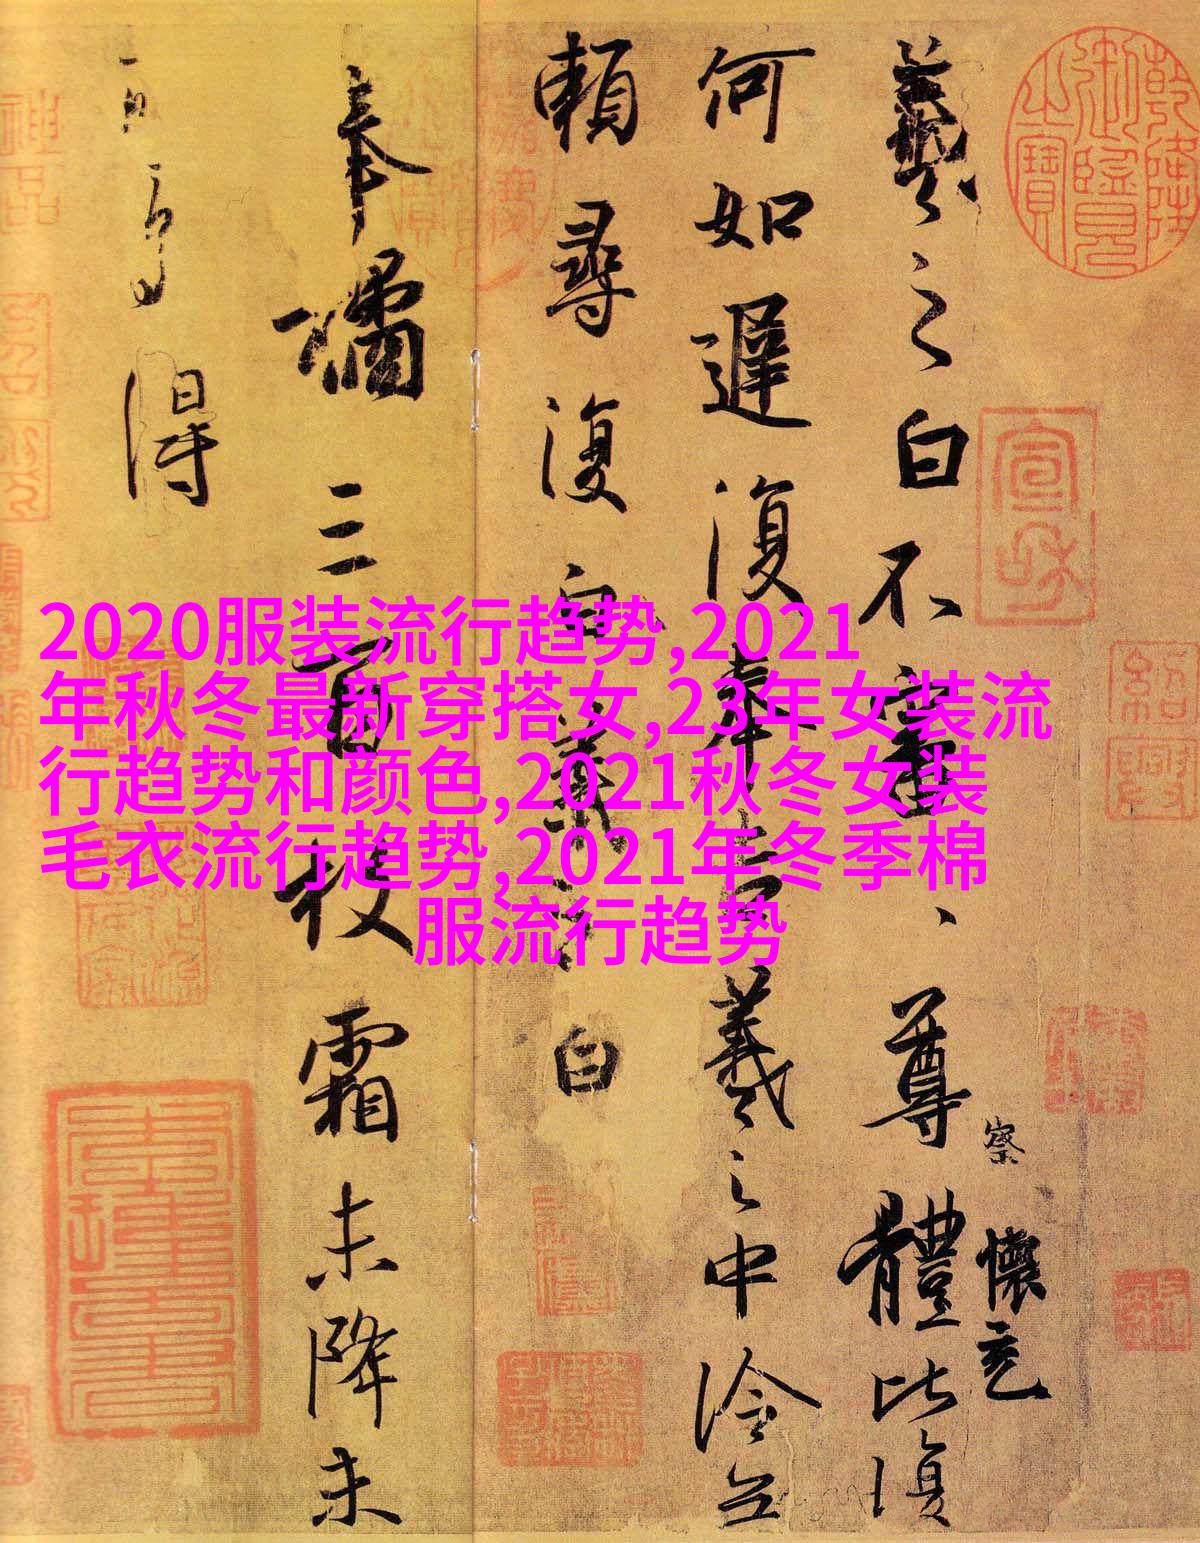 2020服装流行趋势,2021
年秋冬最新穿搭女,23年女装流
行趋势和颜色,2021秋冬女装
毛衣流行趋势,2021年冬季棉
服流行趋势
羲之白不審尊體比復
何如遲復奉告羲之中冷無
賴尋復白羲之白
奉橘三百枚霜未降未
可多得
察
懷充
乾隆御覽之寶
宣和
紹興
神品